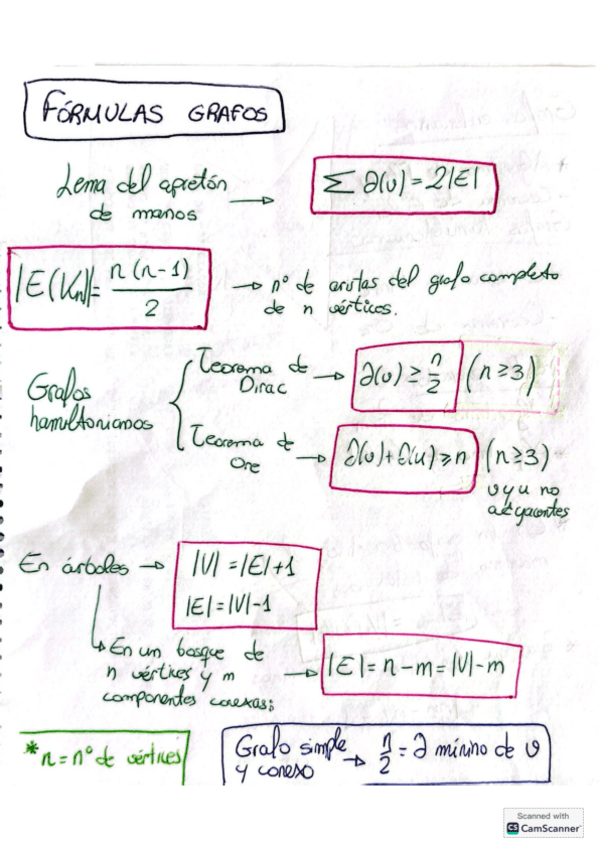 FÓRMULAS GRAFOS
Lema del apretón
de manos
→ Σ ∂(v) = 2|E|
|E(Kn)| = n(n-1)/2 → nº de aristas del grafo completo
de n vértices.
Grafos
hamiltonianos
Teorema de
Dirac
→ ∂(v) ≥ n/2 (n ≥ 3)
Teorema de
Ore
→ ∂(v) + ∂(u) ≥ n (n ≥ 3)
v y u no
adyacentes
En árboles → |V| = |E| + 1
|E| = |V| - 1
En un bosque de
n vértices y m
componentes conexas:
→ |E| = n - m = |V| - m
* n = nº de vértices
Grafo simple
y conexo
→ n/2 = ∂ mínimo de v
Scanned with
CS CamScanner